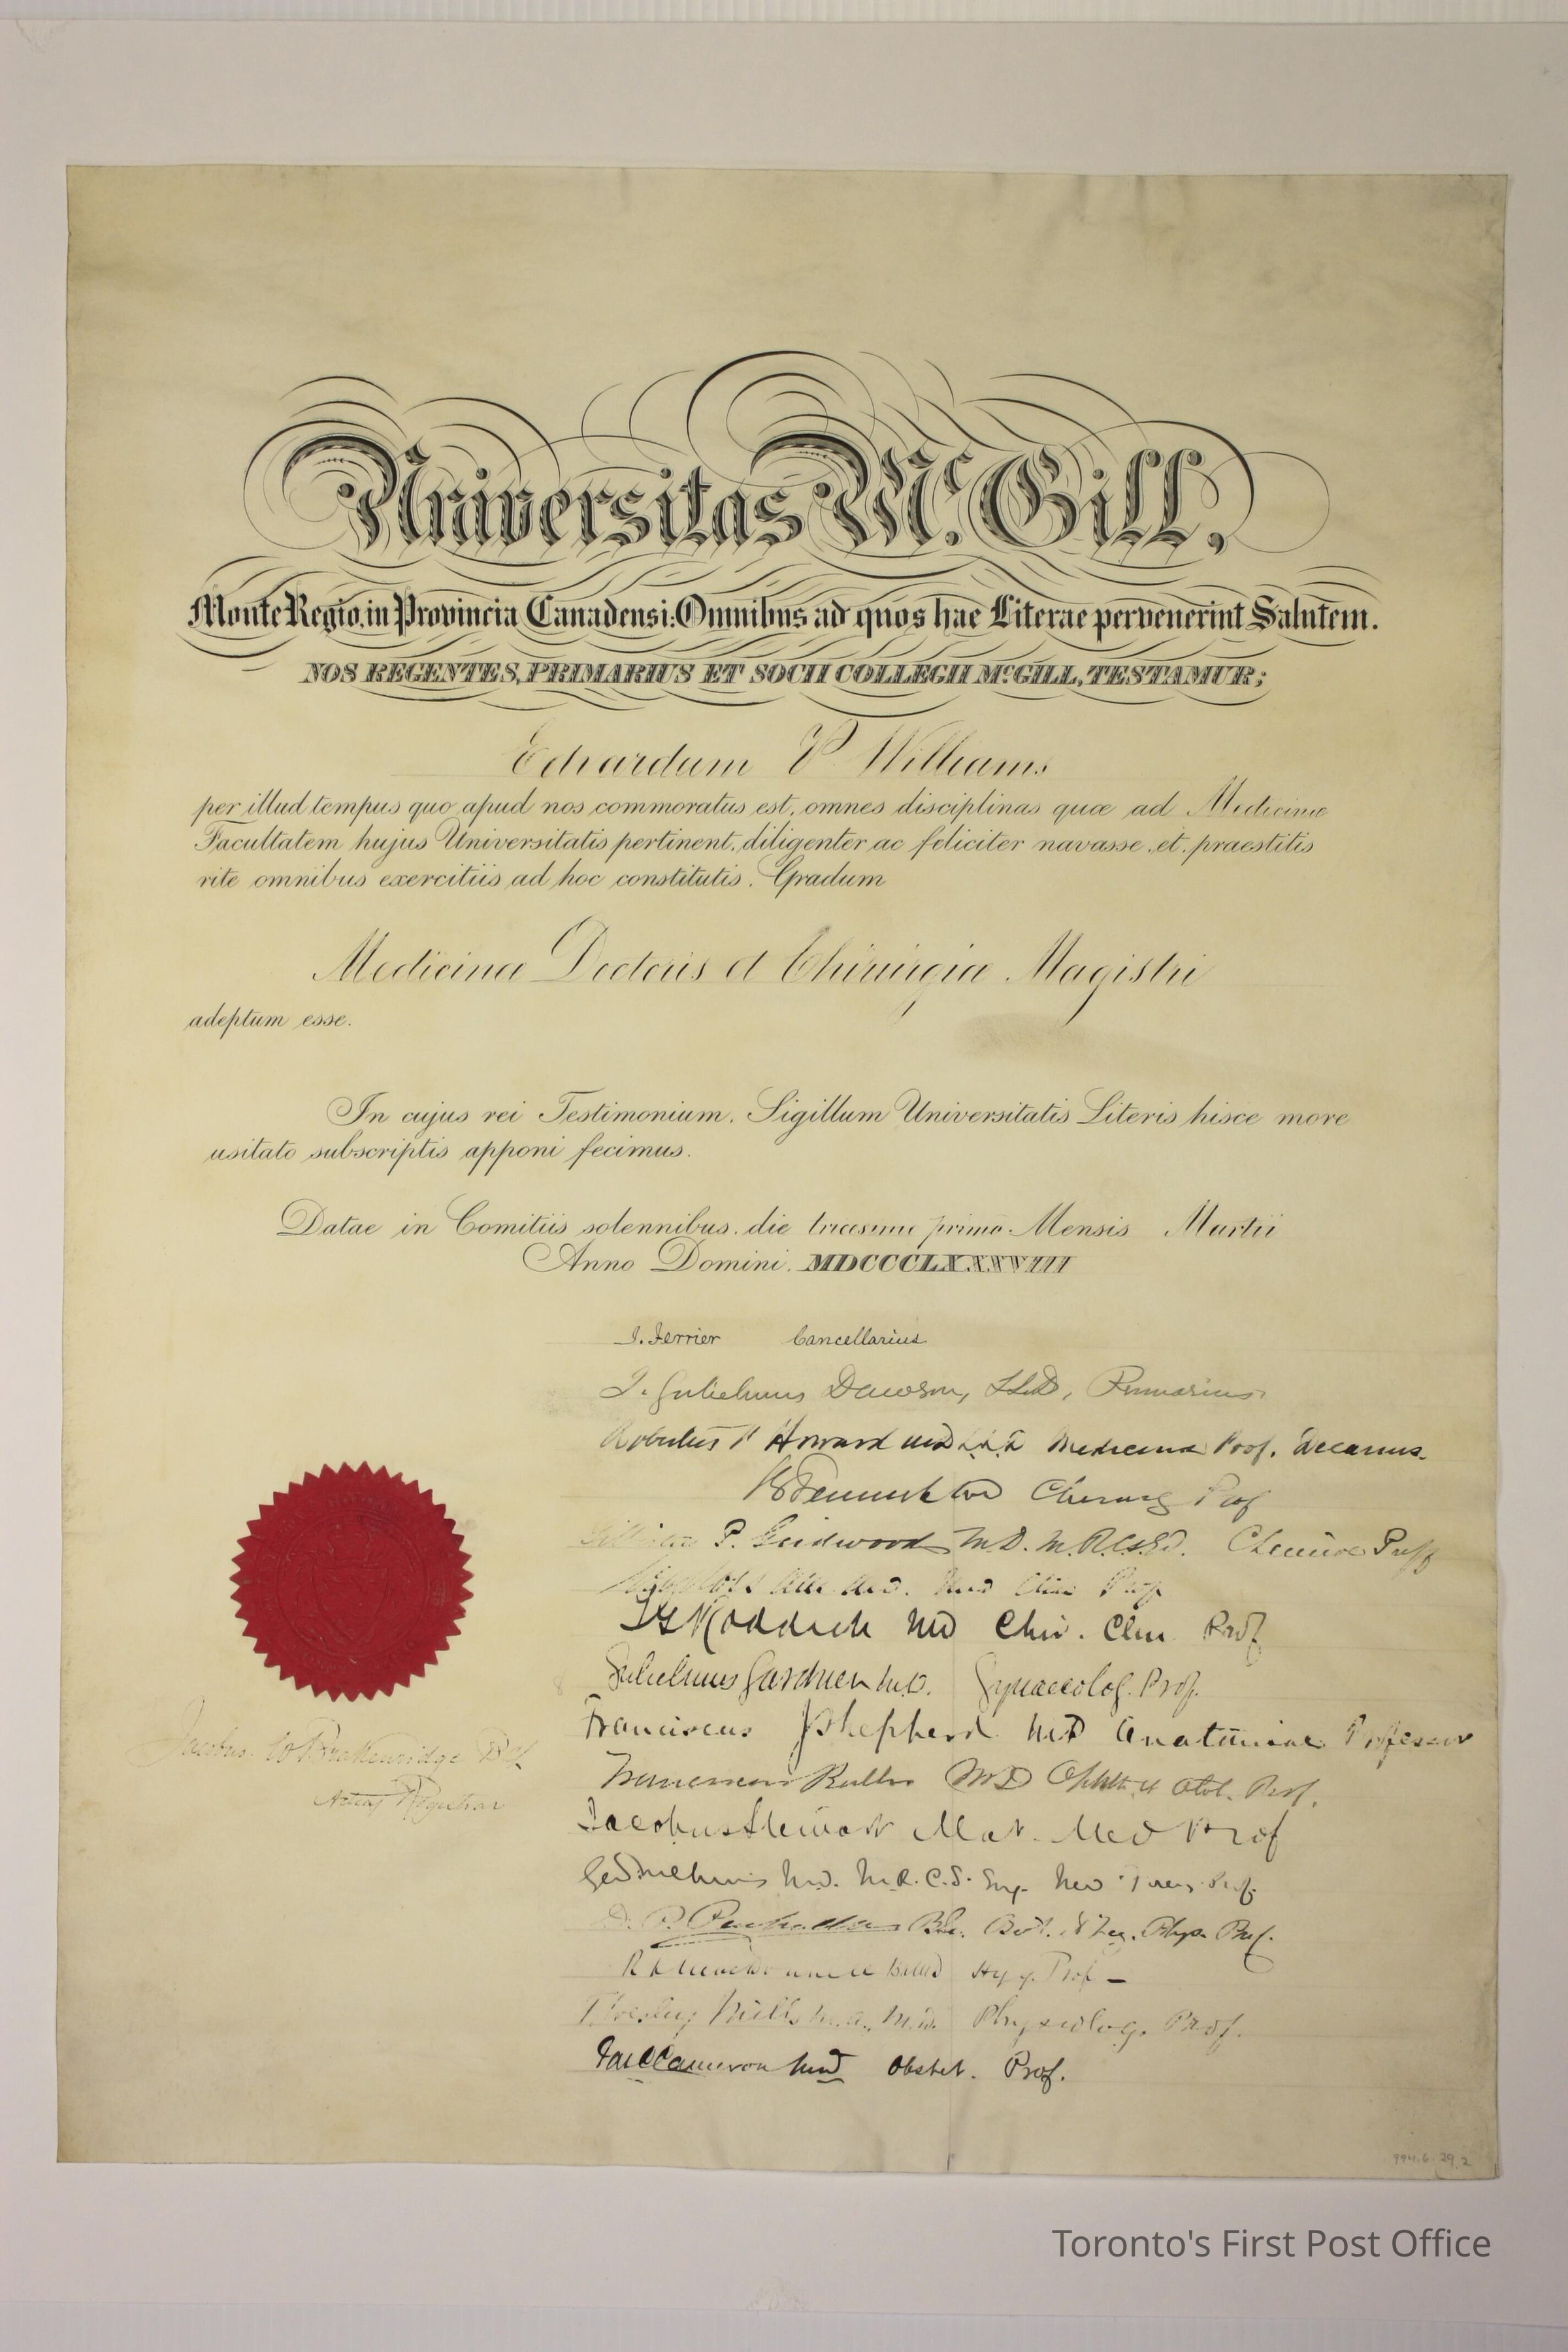 Universitas McGill,
Monte Regio in Provincia Canadensi: Omnibus ad quos hae Literae pervenerint Salutem.
NOS REGENTES, PRIMARIUS ET SOCII COLLEGII McGILL, TESTAMUR;
Edvardum P Williams
per illud tempus quo apud nos commoratus est, omnes disciplinas quæ ad Medicinæ
Facultatem hujus Universitatis pertinent, diligenter ac feliciter navasse, et praestitis
rite omnibus exercitiis ad hoc constitutis. Gradum
Medicinæ Doctoris et Chirurgiæ Magistri
adeptum esse.
In cujus rei Testimonium, Sigillum Universitatis Literis hisce more
usitato subscriptis apponi fecimus.
Datae in Comitiis solennibus, die tricesimo primo Mensis Martii
Anno Domini. MDCCCLXXXVIII
J. Ferrier Cancellarius
J. Gulielmus Dawson, LLD, Primarius.
Robertus P Howard MD LLD Medicinæ Prof. Decanus.
Chirurg Prof
P. Girdwood M.D. M.R.C.S.E. Chemiæ Proff
Clin Prof
TG Roddick MD Chir. Clin Prof
Gulielmus Gardner M.D. Gynaecolog. Prof.
Franciscus J Shepherd MD Anatomiae Professor
Franciscus Buller MD Ophth et Otol. Prof.
Jacobus Stewart Mat. Med Prof
Jacobus W Brakenridge BCL
Acting Registrar
Gulielmus M.D. M.R.C.S. Eng. Med Prof.
D. P. Penhallow BSc. Bot. & Veg. Phys. Prof.
Hyg. Prof -
T Wesley Mills M.A., M.D. Physiolog. Prof.
Jas C Cameron MD Obstet. Prof.
994.6.29.2
Toronto's First Post Office